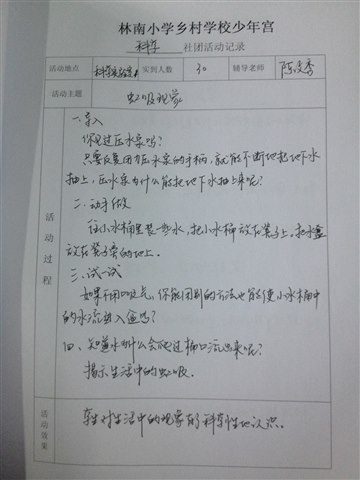 林南小学乡村学校少年宫
科学 社团活动记录
活动地点 科学实验室 实到人数 30 辅导老师 陈
活动主题 虹吸现象
活动过程
一、导入
你见过压水泵吗？
只要反复用力压水泵的手柄，就能不断地把地下水
抽上，压水泵为什么能把地下水抽上来呢？
二、动手做
往小水桶里装一些水，把小水桶放在凳子上。把水盆
放在凳子旁的地上。
三、试一试
如果不用吸，你能用别的方法也能使小水桶中
的水流进入盆吗？
四、知道水为什么会爬过桶口流出来呢？
揭示生活中的虹吸。
活动效果
学生对生活中的现象有科学性地认识。